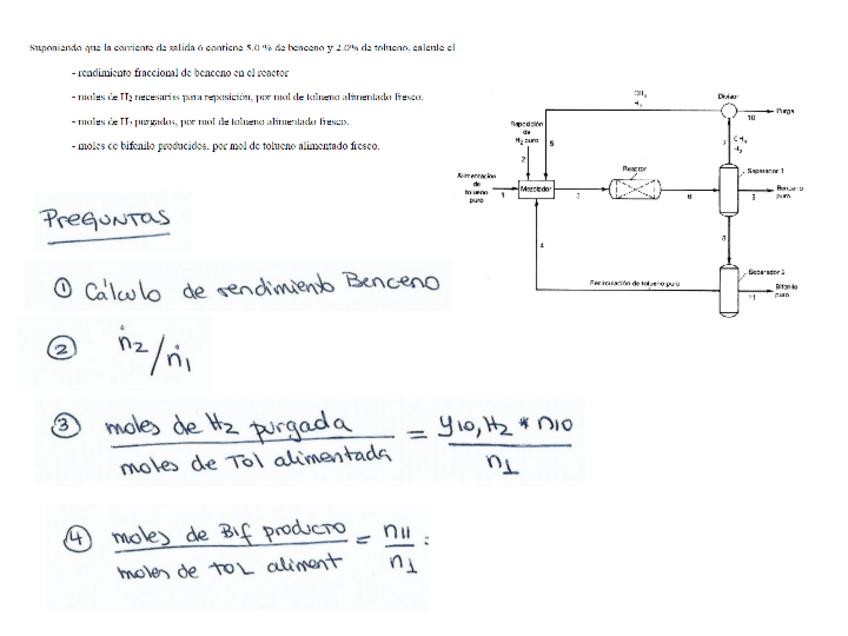 Suponiendo que la corriente de salida 6 contiene 5.0 % de benceno y 2.0% de tolueno, calcule el
- rendimiento fraccional de benceno en el reactor
- moles de H2 necesarias para reposición, por mol de tolueno alimentado fresco.
- moles de H2 purgados, por mol de tolueno alimentado fresco.
- moles de bifenilo producidos, por mol de tolueno alimentado fresco.
CH4
H2
Divisor
Purga
10
Reposición
de
H2 puro
2
5
7
CH4
H2
Alimentación
de
tolueno
puro
1
Mezclador
3
Reactor
6
Separador 1
Benceno
puro
9
4
8
Recirculación de tolueno puro
Separador 2
11
Bifenilo
puro
Preguntas
① Cálculo de rendimiento Benceno
② ṅ2/ṅ1
③ moles de H2 purgada / moles de Tol alimentada = y10,H2 * n10 / n1
④ moles de Bif producto / moles de TOL aliment = n11 / n1 :